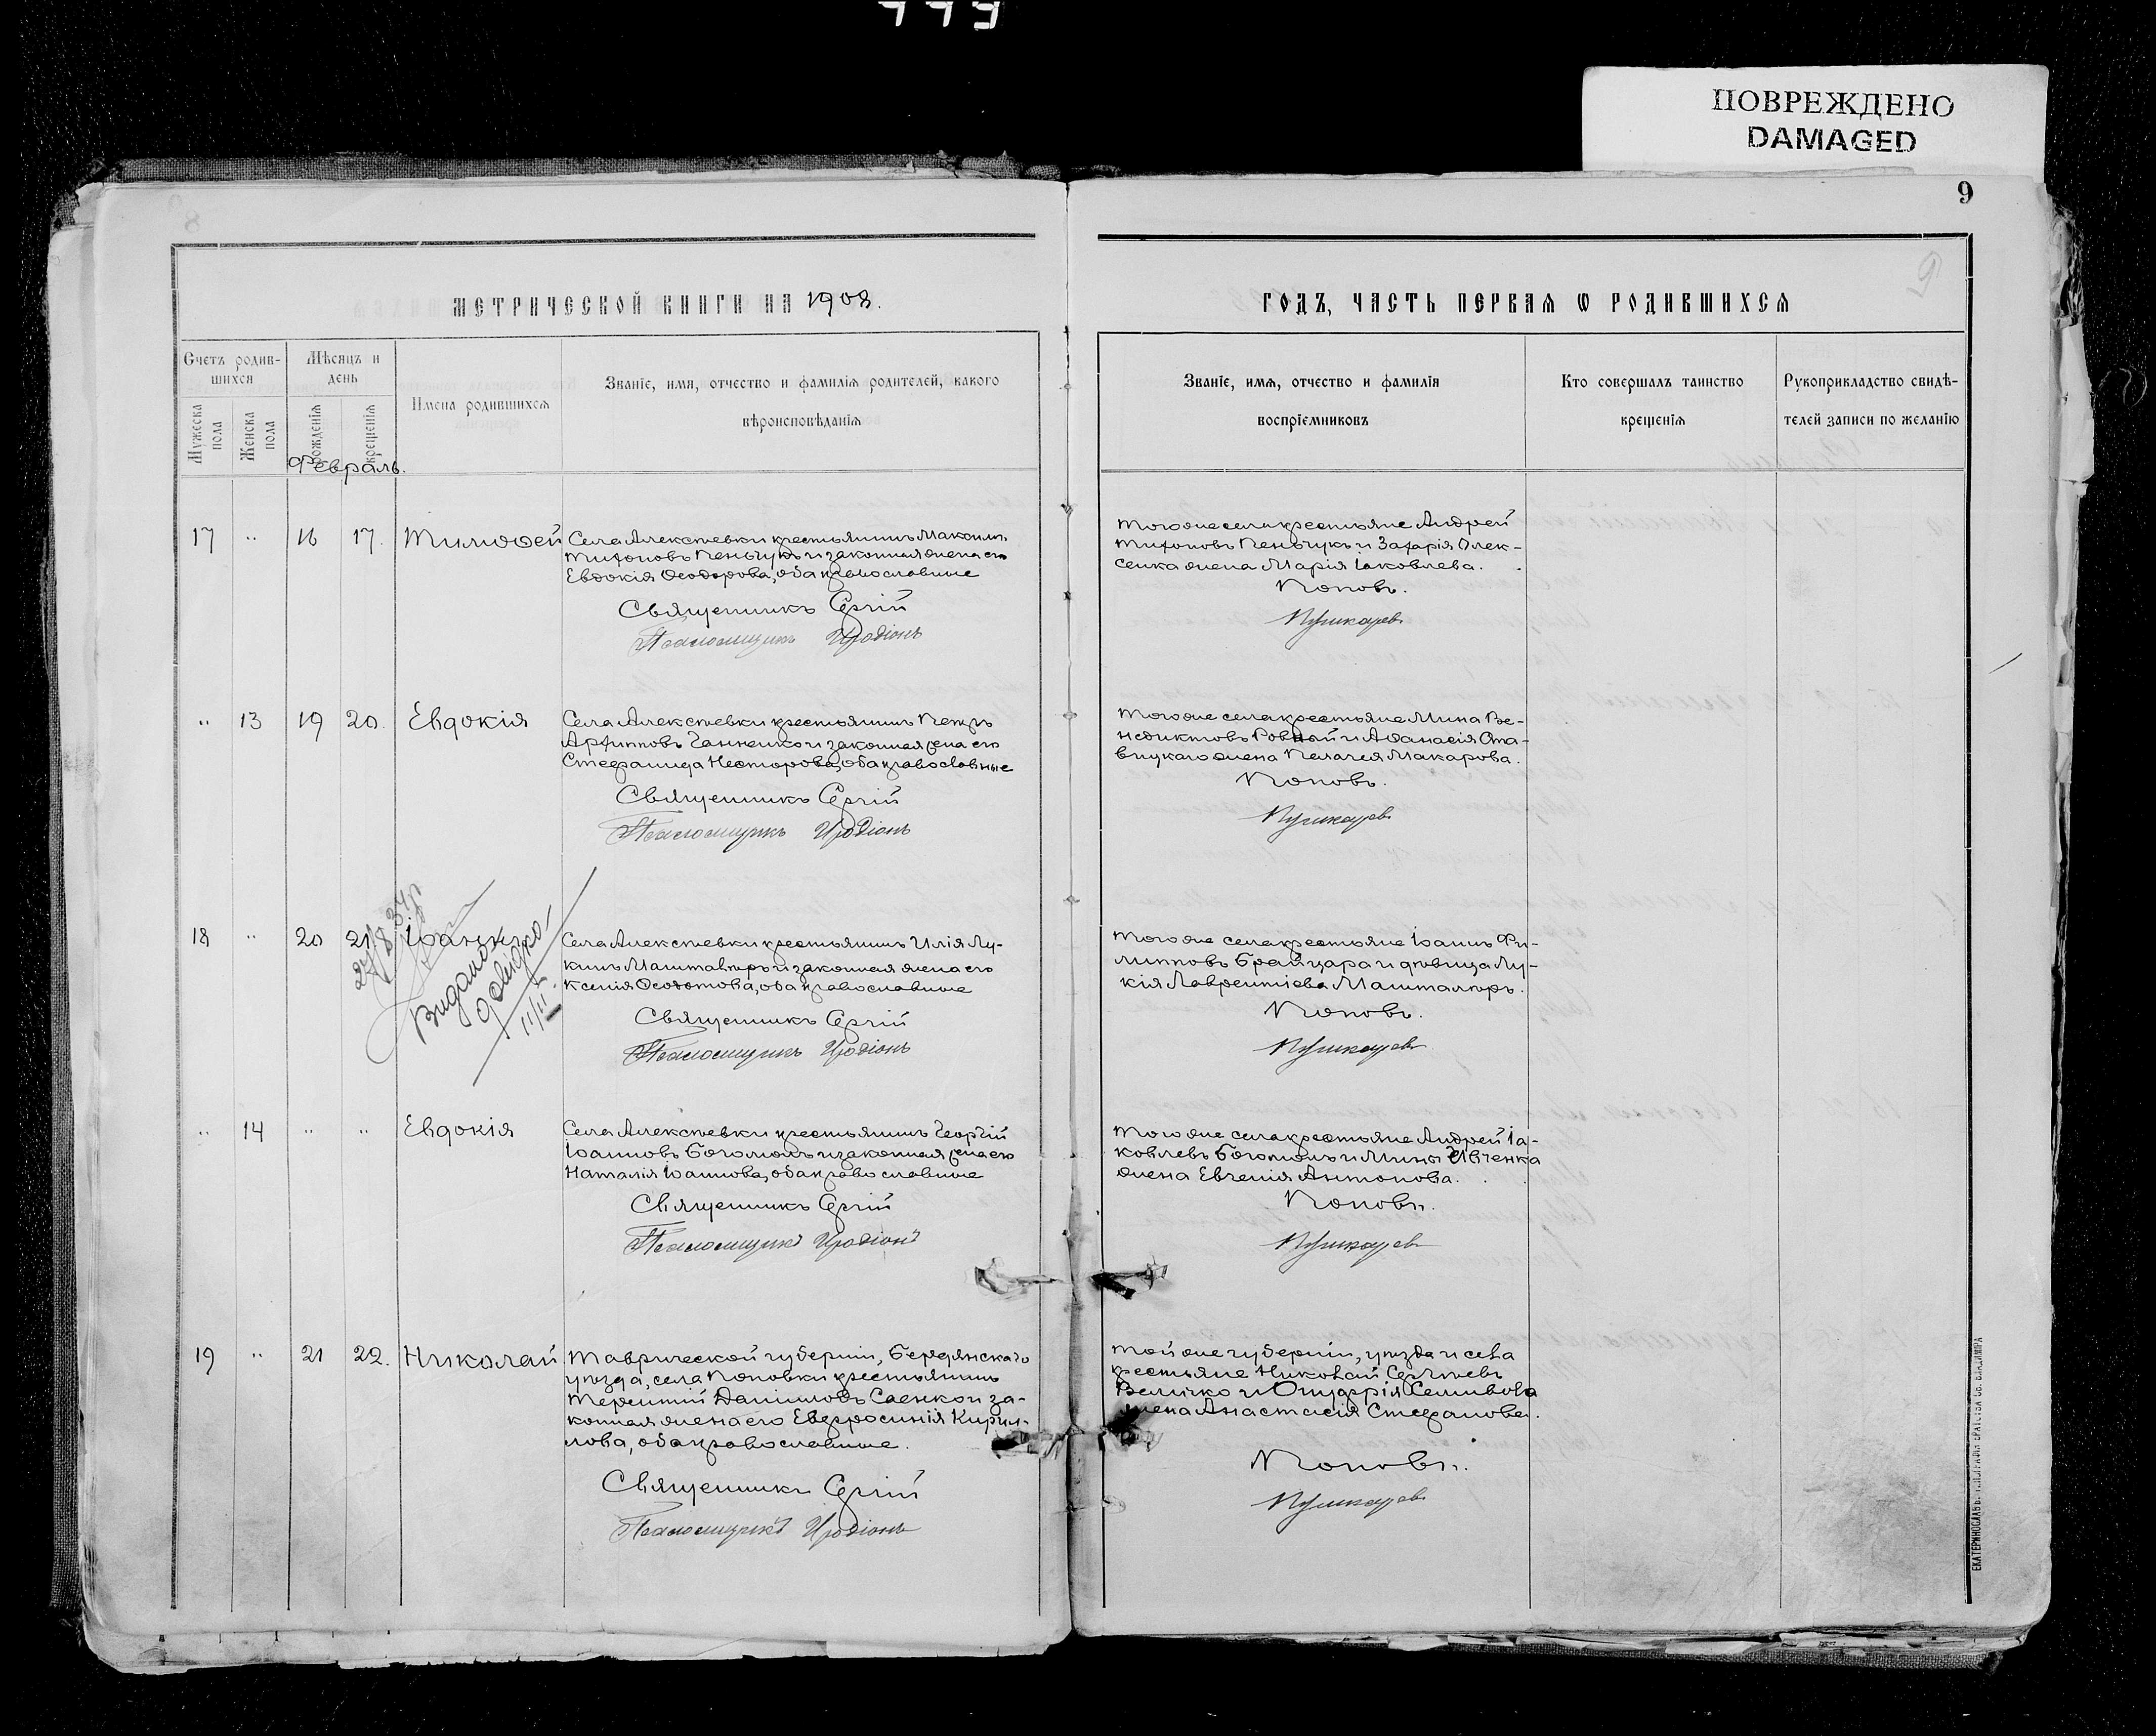 ПОВРЕЖДЕНО
DAMAGED
9
МЕТРИЧЕСКОЙ КНИГИ НА 1908.
ГОДЪ, ЧАСТЬ ПЕРВАЯ Ѡ РОДИВШИХСЯ
Счетъ родив-
шихся
Мѣсяцъ и
день
Имена родившихся
Званіе, имя, отчество и фамилія родителей, какого
вѣроисповѣданія
Мужеска
пола
Женска
пола
рожденія
крещенія
Званіе, имя, отчество и фамилія
воспріемниковъ
Кто совершалъ таинство
крещенія
Рукоприкладство свидѣ-
телей записи по желанію
Февраль.
17 " 16 17. Тимоѳей
Села Алексѣевки крестьянинъ Максимъ
Тихоновъ Пеньчукъ и законная жена его
Евдокія Ѳеодорова, оба православные
Священникъ Сергій
Псаломщикъ Иродіонъ
Того же села крестьяне Андрей
Тихоновъ Пеньчукъ и Захарія Олек-
сенка жена Марія Іаковлева.
Поповъ.
Пушкаревъ
" 13 19 20. Евдокія
Села Алексѣевки крестьянинъ Петръ
Архипповъ Ганненко и законная жена его
Стефанида Несторова, оба православные
Священникъ Сергій
Псаломщикъ Иродіонъ
Того же села крестьяне Мина Ве-
недиктовъ Ровный и Аѳанасія Ста-
внукаго жена Пелагея Макарова.
Поповъ.
Пушкаревъ
18 " 20 21 Іоаннъ
27/8 34 р
Видано
довідка
11/II
Села Алексѣевки крестьянинъ Илія Лу-
кинъ Машталѣръ и законная жена его
Ксенія Ѳеодотова, оба православные
Священникъ Сергій
Псаломщикъ Иродіонъ
Того же села крестьяне Іоаннъ Фи-
липповъ Брайцара и дѣвица Лу-
кія Лаврентіева Машталѣръ.
Поповъ.
Пушкаревъ
" 14 " " Евдокія
Села Алексѣевки крестьянинъ Георгій
Іоанновъ Богомолъ и законная жена его
Наталія Іоаннова, оба православные
Священникъ Сергій
Псаломщикъ Иродіонъ
Того же села крестьяне Андрей Іа-
ковлевъ Богомолъ и Мины Ивченка
жена Евгенія Антонова.
Поповъ.
Пушкаревъ
19 " 21 22. Николай
Таврической губерніи, Бердянскаго
уѣзда, села Поповки крестьянинъ
Терентій Даніиловъ Саенко и за-
конная жена его Евфросинія Кирил-
лова, оба православные.
Священникъ Сергій
Псаломщикъ Иродіонъ
Той же губерніи, уѣзда и села
крестьяне Николай Сергѣевъ
Величко и Онуфрія Селивова
жена Анастасія Стефанова.
Поповъ.
Пушкаревъ